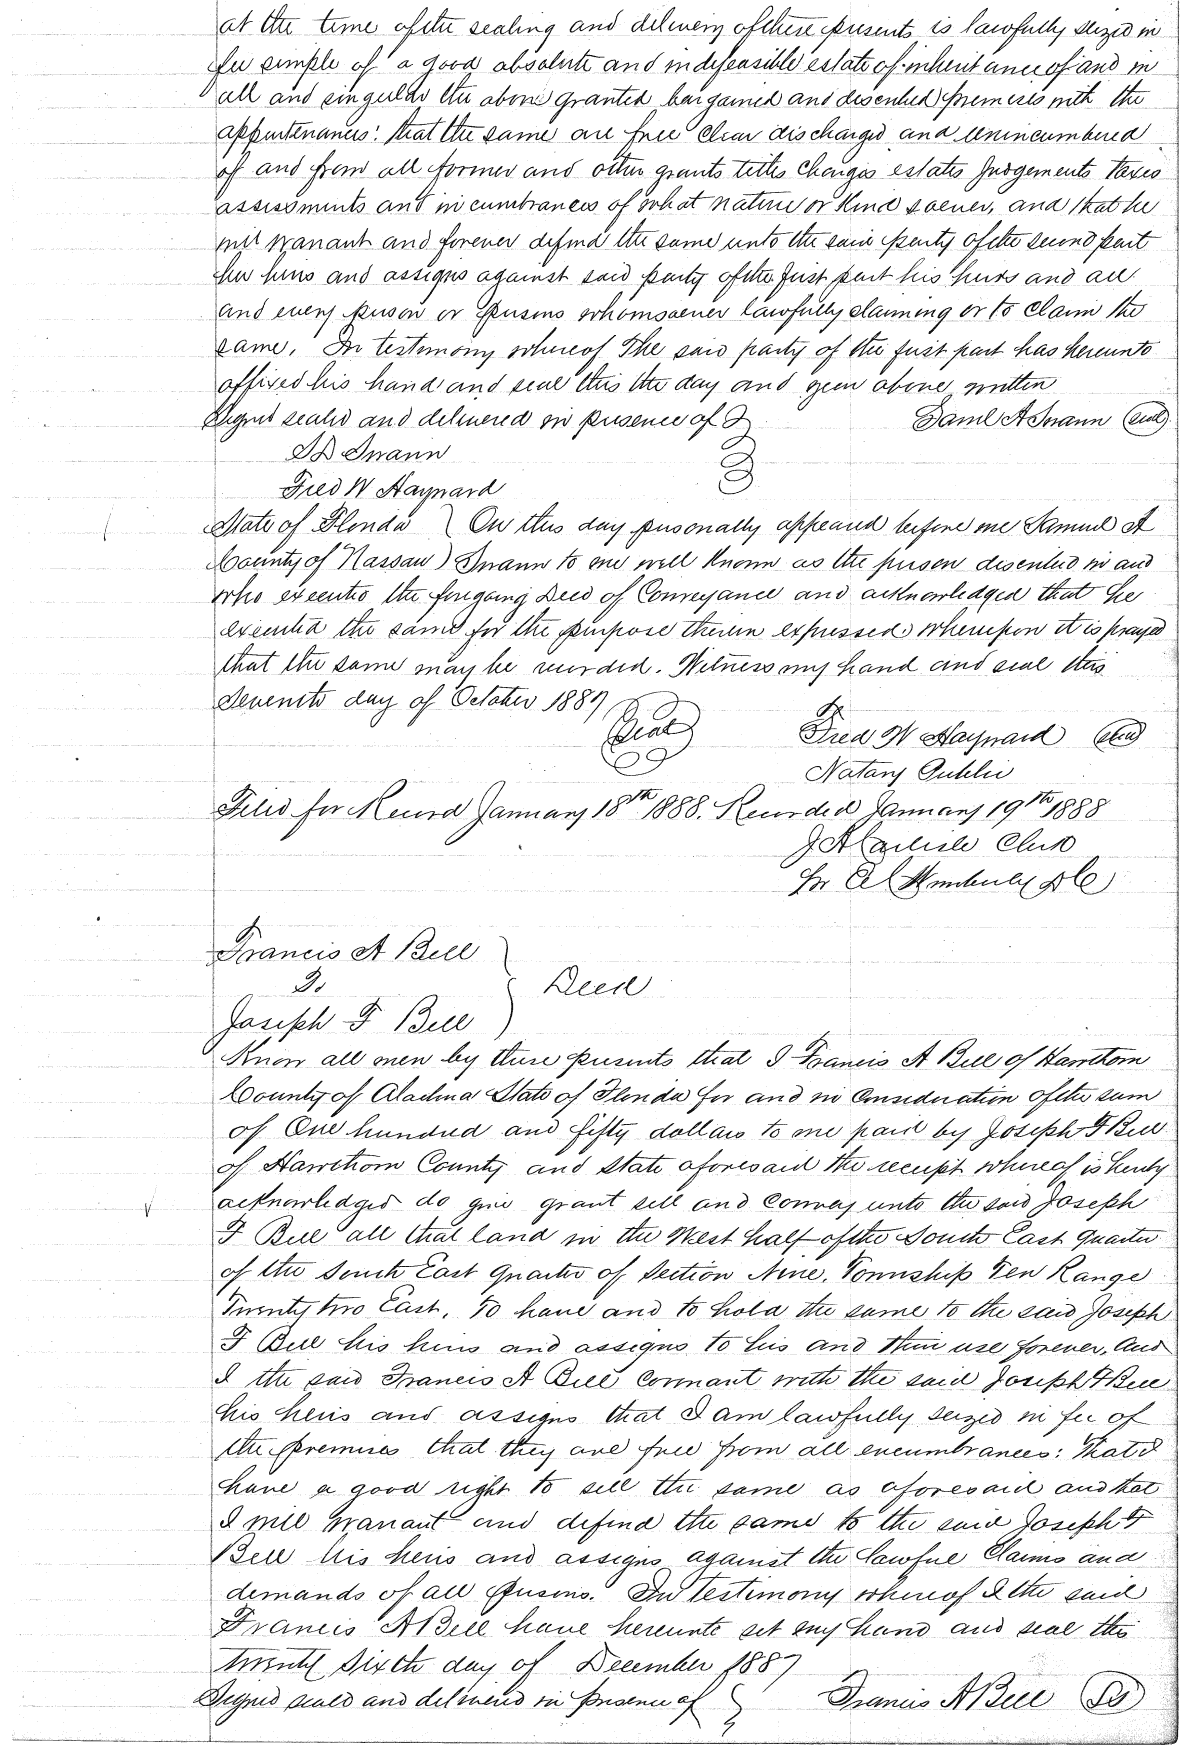 at the time of the sealing and delivery of these presents is lawfully seized in
fee simple of a good absolute and indefeasible estate of inheritance of and in
all and singular the above granted bargained and described premises with the
appurtenances: that the same are free clear discharged and unincumbered
of and from all former and other grants titles charges estates Judgements taxes
assessments and incumbrances of what nature or kind soever, and that he
will warrant and forever defend the same unto the said party of the second part
her heirs and assigns against said party of the first part his heirs and all
and every person or persons whomsoever lawfully claiming or to claim the
same. In testimony whereof The said party of the first part has hereunto
affixed his hand and seal this the day and year above written
Signed sealed and delivered in presence of Saml A Swann (seal)
Swann
Fred W Haynard
State of Florida } On this day personally appeared before me Samuel A
County of Nassau } Swann to me well known as the person described in and
who executed the foregoing Deed of Conveyance and acknowledged that he
executed the same for the purpose therein expressed whereupon it is prayed
that the same may be recorded. Witness my hand and seal this
Seventh day of October 1887
(Seal) Fred W Haynard (seal)
Notary Public
Filed for Record January 18th 1888. Recorded January 19th 1888
J A Carlisle Clerk
DC
Francis A Bell
To } Deed
Joseph F Bell
Know all men by these presents that I Francis A Bell of Hawthorn
County of Alachua State of Florida for and in Consideration of the sum
of One hundred and fifty dollars to me paid by Joseph F Bell
of Hawthorn County and State aforesaid the receipt whereof is hereby
acknowledged do give grant sell and convey unto the said Joseph
F Bell all that land in the West half of the South East quarter
of the South East quarter of Section Nine, Township Ten Range
Twenty two East. To have and to hold the same to the said Joseph
F Bell his heirs and assigns to his and their use forever, And
I the said Francis A Bell covenant with the said Joseph F Bell
his heirs and assigns that I am lawfully seized in fee of
the premises that they are free from all encumbrances: that I
have a good right to sell the same as aforesaid and that
I will warrant and defend the same to the said Joseph F
Bell his heirs and assigns against the lawful Claims and
demands of all persons. In testimony whereof I the said
Francis A Bell have hereunto set my hand and seal this
twenty sixth day of December 1887
Signed seald and delivered in presence of } Francis A Bell (LS)